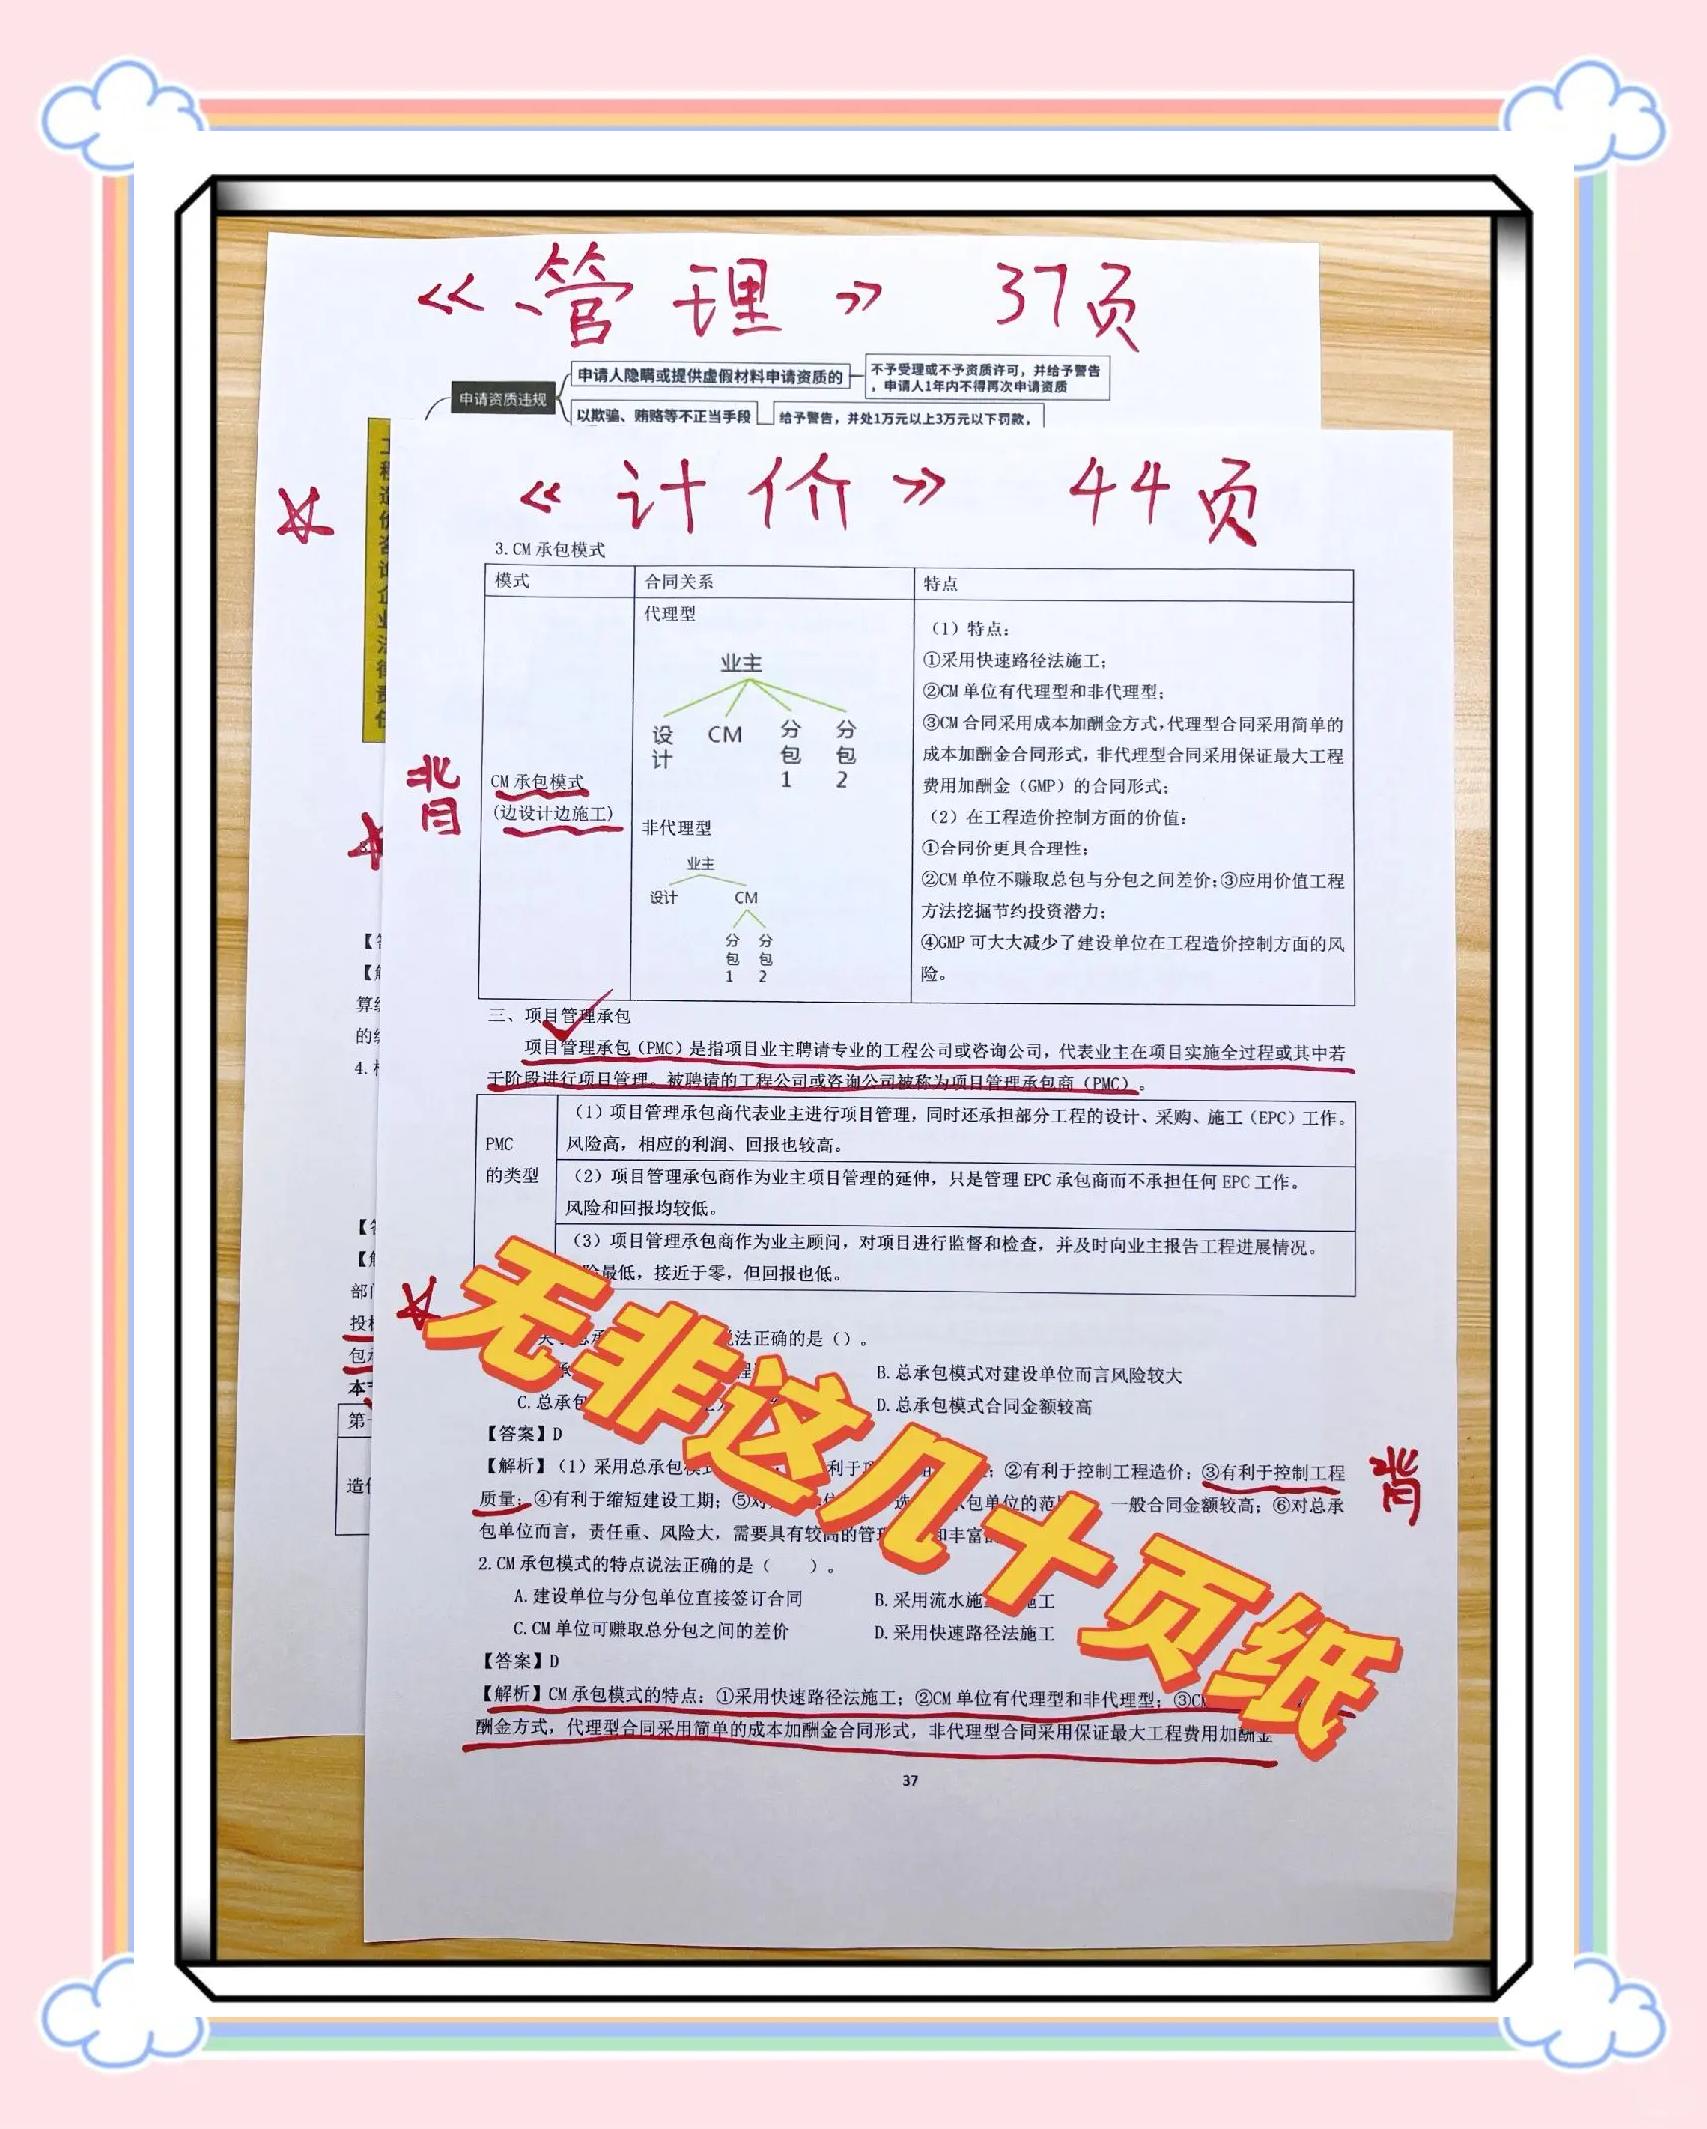 《管理》 37页
申请资质违规
申请人隐瞒或提供虚假材料申请资质的
不予受理或不予资质许可，并给予警告
，申请人1年内不得再次申请资质
以欺骗、贿赂等不正当手段
给予警告，并处1万元以上3万元以下罚款，
《计价》 44页
3.CM 承包模式
模式 合同关系 特点
CM 承包模式
(边设计边施工)
背
代理型
业主
设计 CM 分包1 分包2
非代理型
业主
设计 CM
分包1 分包2
（1）特点：
①采用快速路径法施工；
②CM 单位有代理型和非代理型；
③CM 合同采用成本加酬金方式，代理型合同采用简单的
成本加酬金合同形式，非代理型合同采用保证最大工程
费用加酬金（GMP）的合同形式；
（2）在工程造价控制方面的价值：
①合同价更具合理性；
②CM 单位不赚取总包与分包之间差价；③应用价值工程
方法挖掘节约投资潜力；
④GMP 可大大减少了建设单位在工程造价控制方面的风
险。
三、项目管理承包
项目管理承包（PMC）是指项目业主聘请专业的工程公司或咨询公司，代表业主在项目实施全过程或其中若
干阶段进行项目管理。被聘请的工程公司或咨询公司被称为项目管理承包商（PMC）。
PMC
的类型
（1）项目管理承包商代表业主进行项目管理，同时还承担部分工程的设计、采购、施工（EPC）工作。
风险高，相应的利润、回报也较高。
（2）项目管理承包商作为业主项目管理的延伸，只是管理 EPC 承包商而不承担任何 EPC 工作。
风险和回报均较低。
（3）项目管理承包商作为业主顾问，对项目进行监督和检查，并及时向业主报告工程进展情况。
险最低，接近于零，但回报也低。
无非这几十页纸
法正确的是（）。
B.总承包模式对建设单位而言风险较大
C.总承包
D.总承包模式合同金额较高
【答案】D
【解析】（1）采用总承包模 利于 ；②有利于控制工程造价；③有利于控制工程
质量；④有利于缩短建设工期；⑤对 包单位的范 一般合同金额较高；⑥对总承
包单位而言，责任重、风险大，需要具有较高的管 和丰富
背
2.CM 承包模式的特点说法正确的是（ ）。
A.建设单位与分包单位直接签订合同
B.采用流水施 施工
C.CM 单位可赚取总分包之间的差价
D.采用快速路径法施工
【答案】D
【解析】CM 承包模式的特点：①采用快速路径法施工；②CM 单位有代理型和非代理型；③C
酬金方式，代理型合同采用简单的成本加酬金合同形式，非代理型合同采用保证最大工程费用加酬金
37